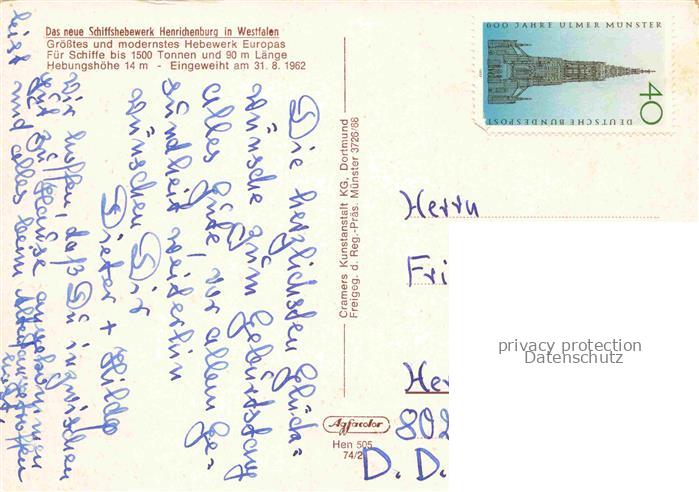 Das neue Schiffshebewerk Henrichenburg in Westfalen
Größtes und modernstes Hebewerk Europas
Für Schiffe bis 1500 Tonnen und 90 m Länge
Hebungshöhe 14 m - Eingeweiht am 31. 8. 1962
Die herzlichsten Glück-
wünsche zum Geburtstag
alles Gute, vor allem Ge-
sundheit weiterhin
wünschen Dir
Dieter + Hilde
Wir hoffen, daß Du inzwischen
gut zu Hause angekommen
bist und alles beim Alten angetroffen
hast.
Cramers Kunstanstalt KG, Dortmund
Freigeg. d. Reg.-Präs. Münster 3726/66
600 JAHRE ULMER MÜNSTER
40
DEUTSCHE BUNDESPOST
Herrn
Fri
Her
802
D. D.
Agfacolor
Hen 505
74/2
privacy protection
Datenschutz